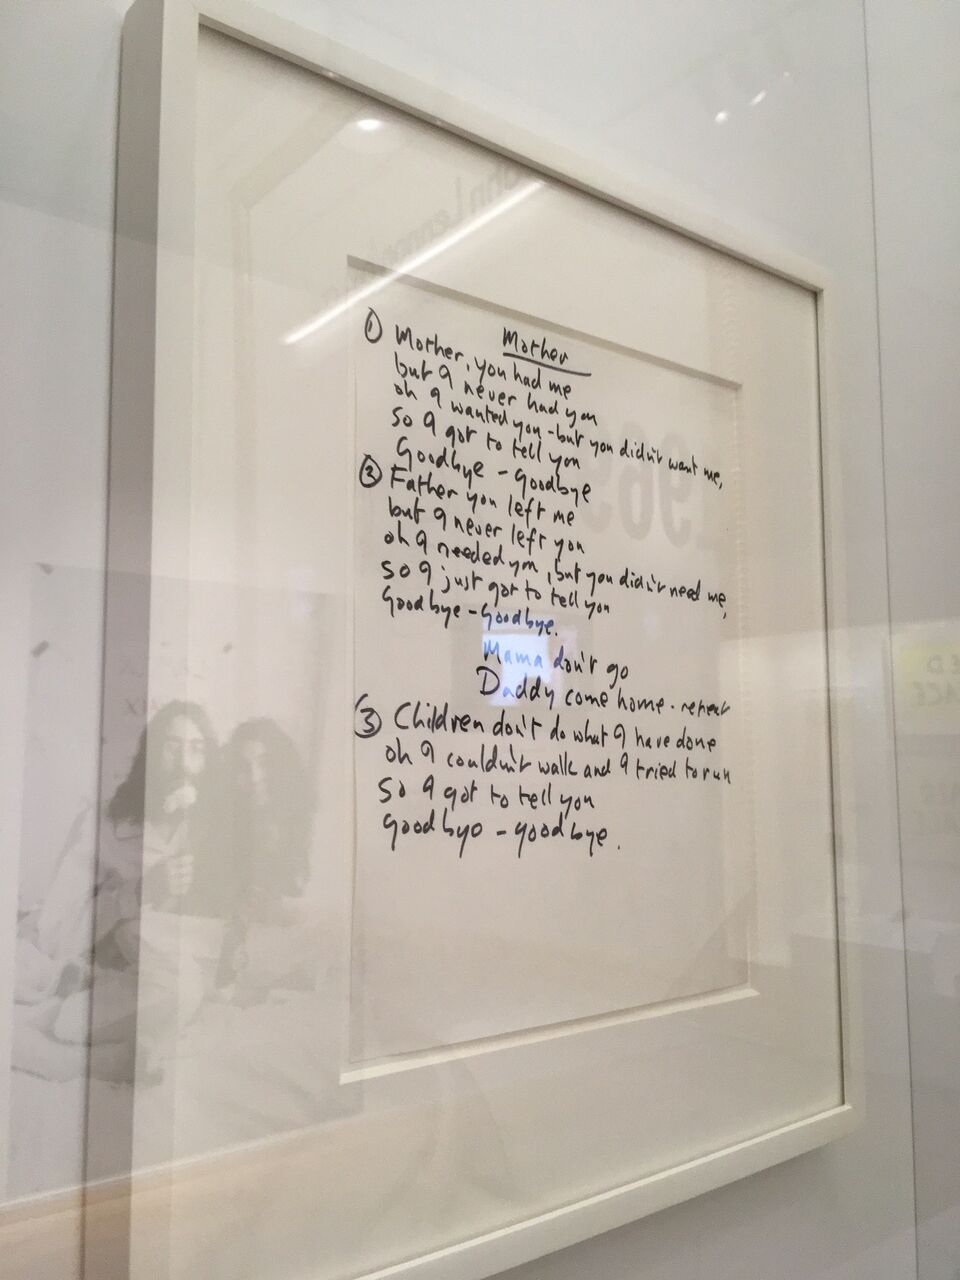 Mother
① Mother, you had me
but I never had you
oh I wanted you - but you didn't want me,
so I got to tell you
Goodbye - goodbye
② Father you left me
but I never left you
oh I needed you, but you didn't need me,
so I just got to tell you
Goodbye - Goodbye.
Mama don't go
Daddy come home - repeat
③ Children don't do what I have done
oh I couldn't walk and I tried to run
so I got to tell you
goodbye - goodbye.
John Lennon
1969